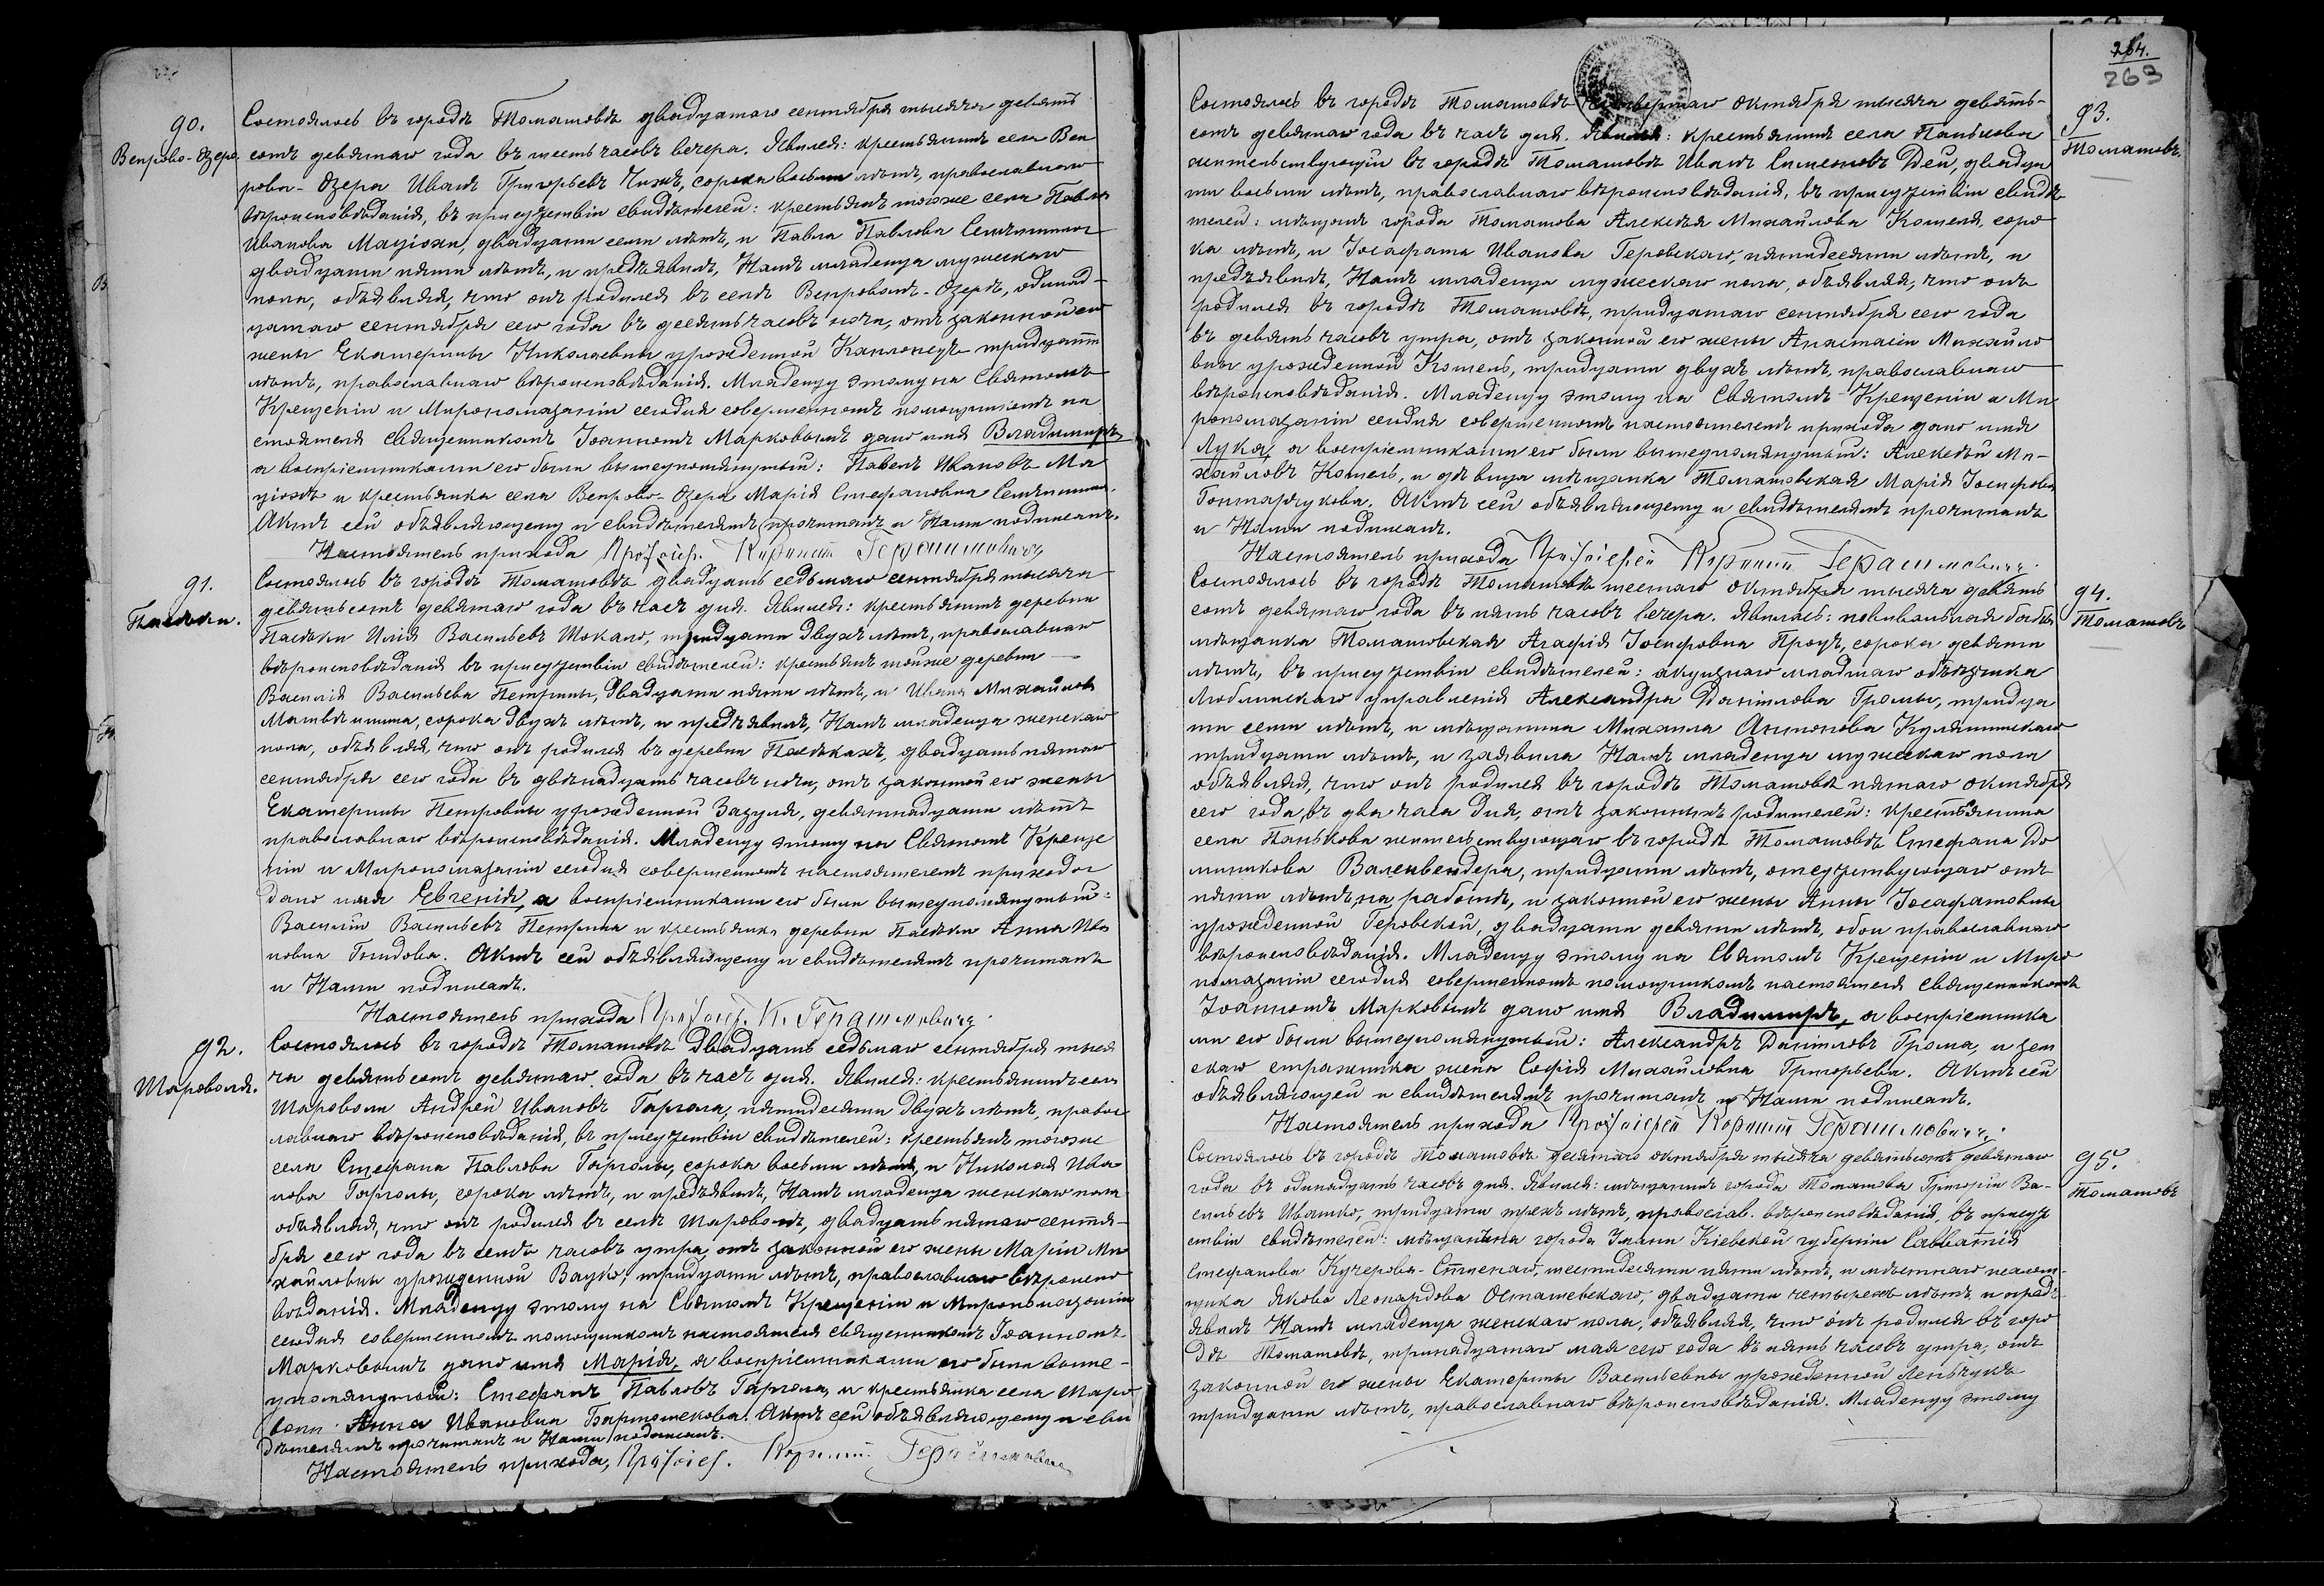 90.
Вепрово-Озеро.
Состоялось въ городѣ Томашовѣ двадцатаго сентября тысяча девять
сотъ девятаго года въ шесть часовъ вечера. Явился: крестьянинъ села Веп
рова-Озера Иванъ Григорьевъ Чижъ, сорока восьми лѣтъ, православнаго
вѣроисповѣданія, въ присутствіи свидѣтелей: крестьянъ тогоже села Павла
Иванова Маціохи, двадцати семи лѣтъ, и Павла Павлова
двадцати пяти лѣтъ, и предъявилъ, Намъ младенца мужескаго
пола, объявляя, что онъ родился въ селѣ Вепровомъ-Озерѣ, одинад-
цатаго сентября сего года въ десять часовъ ночи, отъ законной его
жены Екатерины Николаевны урожденной тридцати
лѣтъ, православнаго вѣроисповѣданія. Младенцу этому на Святомъ
Крещеніи и Миропомазаніи сегодня совершенномъ помощникомъ на
стоятеля священникомъ Іоанномъ Марковымъ дано имя Владимиръ
а воспріемниками его были вышеупомянутый: Павелъ Ивановъ Ма
ціохъ и крестьянка села Вепрово-Озера Марія Стефановна
Актъ сей объявляющему и свидѣтелямъ прочитанъ и Нами подписанъ.
Настоятель прихода Протоіер. Корнилій Герасимовичъ
91.
Пасѣки.
Состоялось въ городѣ Томашовѣ двадцать седьмаго сентября тысяча
девятьсотъ девятаго года въ часъ дня. Явился: крестьянинъ деревни
Пасѣки Илія Васильевъ Шокало, тридцати двухъ лѣтъ, православнаго
вѣроисповѣданія въ присутствіи свидѣтелей: крестьянъ тойже деревни
Василія Васильева Петрины, двадцати пяти лѣтъ, и Ивана Михайлова
сорока двухъ лѣтъ, и предъявилъ, Намъ младенца женскаго
пола, объявляя, что онъ родился въ деревни Пасѣкахъ, двадцать пятаго
сентября сего года въ двѣнадцать часовъ ночи, отъ законной его жены
Екатерины Петровны урожденной Зазуля, девятнадцати лѣтъ
православнаго вѣроисповѣданія. Младенцу этому на Святомъ Креще
ніи и Миропомазаніи сегодня совершенномъ настоятелемъ прихода
дано имя Евгенія, а воспріемниками его были вышеупомянутый:
Василій Васильевъ Петрина и крестьянка деревни Пасѣки Анна Ива
новна Гнидова. Актъ сей объявляющему и свидѣтелямъ прочитанъ
и Нами подписанъ.
Настоятель прихода Протоіер. К. Герасимовичъ
92.
Шароволя.
Состоялось въ городѣ Томашовѣ двадцать седьмаго сентября тыся
ча девятьсотъ девятаго года въ часъ дня. Явился: крестьянинъ села
Шароволи Андрей Ивановъ Гаргола, пятидесяти двухъ лѣтъ, правос
лавнаго вѣроисповѣданія, въ присутствіи свидѣтелей: крестьянъ тогоже
села Стефана Павлова Гарголы, сорока восьми лѣтъ, и Николая Ива
нова Гарголы, сорока лѣтъ, и предъявилъ, Намъ младенца женскаго пола
объявляя, что онъ родился въ селѣ Шароволѣ, двадцать пятаго сентя-
бря сего года въ семь часовъ утра, отъ законной его жены Маріи Ми
хайловны урожденной Вацко, тридцати лѣтъ, православнаго вѣроиспо
вѣданія. Младенцу этому на Святомъ Крещеніи и Миропомазаніи
сегодня совершенномъ помощникомъ настоятеля священникомъ Іоанномъ
Марковымъ дано имя Марія, а воспріемниками его были выше-
упомянутый: Стефанъ Павловъ Гаргола, и крестьянка села Шаро
воли Анна Ивановна Бартошекова. Актъ сей объявляющему и сви
дѣтелямъ прочитанъ и Нами подписанъ.
Настоятель прихода, Протоіер. Корнилій Герасимовичъ
264.
263
93.
Томашовъ.
Состоялось въ городѣ Томашовѣ четвертаго октября тысяча девять-
сотъ девятаго года въ часъ дня. Явился: крестьянинъ села Панькова
жительствующій въ городѣ Томашовѣ Иванъ Симеоновъ Дей, двадца
ти восьми лѣтъ, православнаго вѣроисповѣданія, въ присутствіи свидѣ
телей: мѣщанъ города Томашова Алексѣя Михайлова Кошеля, соро
ка лѣтъ, и Іосафата Иванова Геровскаго, пятидесяти лѣтъ, и
предъявилъ, Намъ младенца мужескаго пола, объявляя, что онъ
родился въ городѣ Томашовѣ, тридцатаго сентября сего года
въ девять часовъ утра, отъ законной его жены Анастасіи Михайло
вны урожденной Кошель, тридцати двухъ лѣтъ, православнаго
вѣроисповѣданія. Младенцу этому на Святомъ Крещеніи и Ми
ропомазаніи сегодня совершенномъ настоятелемъ прихода дано имя
Лука, а воспріемниками его были вышеупомянутый: Алексѣй Ми-
хайловъ Кошель, и дѣвица мѣщанка Томашовская Марія Іосифовна
Гонтарукова. Актъ сей объявляющему и свидѣтелямъ прочитанъ
и Нами подписанъ.
Настоятель прихода Протоіерей Корнилій Герасимовичъ.
94.
Томашовъ
Состоялось въ городѣ Томашовѣ шестаго октября тысяча девять
сотъ девятаго года въ пять часовъ вечера. Явилась: повивальная бабка
мѣщанка Томашовская Агафія Іосифовна Процъ, сорока девяти
лѣтъ, въ присутствіи свидѣтелей: акцизнаго младшаго объѣзчика
Люблинскаго управленія Александра Даніилова Громы, тридца
ти семи лѣтъ, и мѣщанина Михаила Антонова Кулятинскаго
тридцати лѣтъ, и заявила Намъ младенца мужескаго пола
объявляя, что онъ родился въ городѣ Томашовѣ пятаго октября
сего года, въ два часа дня, отъ законныхъ родителей: крестьянина
села Панькова жительствующаго въ городѣ Томашовѣ Стефана До
миникова Валенвендера, тридцати лѣтъ, отсутствующаго отъ
пяти лѣтъ, на работѣ, и законной его жены Анны Іосафатовны
урожденной Геровской, двадцати девяти лѣтъ, обои православнаго
вѣроисповѣданія. Младенцу этому на Святомъ Крещеніи и Миро
помазаніи сегодня совершенномъ помощникомъ настоятеля священникомъ
Іоанномъ Марковымъ дано имя Владимиръ, а воспріемника
ми его были вышеупомянутый: Александръ Даніиловъ Грома, и зем
скаго стражника жена Софія Михайловна Григорьева. Актъ сей
объявляющей и свидѣтелямъ прочитанъ и Нами подписанъ.
Настоятель прихода Протоіерей Корнилій Герасимовичъ.
95.
Томашовъ
Состоялось въ городѣ Томашовѣ десятаго октября тысяча девятьсотъ девятаго
года въ одинадцать часовъ дня. Явился: мѣщанинъ города Томашова Григорій Ва-
сильевъ Ивашко, тридцати трехъ лѣтъ, правосlав. вѣроисповѣданія, въ присут
ствіи свидѣтелей: мѣщанина города Умани Кіевской губерніи Савватія
Стефанова Кучерова- шестидесяти пяти лѣтъ, и мѣстнаго псалом-
щика Якова Леонардова Осташевскаго, двадцати четырехъ лѣтъ, и предъ-
явилъ Намъ младенца женскаго пола, объявляя, что онъ родился въ горо
дѣ Томашовѣ, тринадцатаго мая сего года въ пять часовъ утра, отъ
законной его жены Екатерины Васильевны урожденной Леньчукъ
тридцати лѣтъ, православнаго вѣроисповѣданія. Младенцу этому